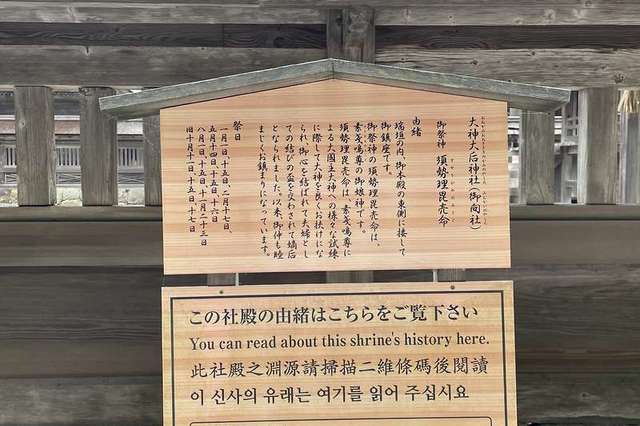 大神大后神社(御向社)
御祭神 須勢理毘売命
由緒
瑞垣の内、御本殿の東側に接して
御鎮座です。
御祭神の須勢理毘売命は、
素戔嗚尊の御嫡神です。
須勢理毘売命は、素戔嗚尊に
よる大國主大神への様々な試練
に際して大神を良くお扶けにな
られ、御心を結ばれて夫婦とし
ての結びの盃を交わされて嫡后
となられました。以来、御仲も睦
まじくお鎮まりになっています。
祭日
一月一日、十五日、二月十七日、
五月十四日、十五日、十六日
八月一日、十五日、十一月二十三日
旧十月十一日、十五日、十七日
この社殿の由緒はこちらをご覧下さい
You can read about this shrine's history here.
此社殿之淵源請掃描二維條碼後閱讀
이 신사의 유래는 여기를 읽어 주십시요